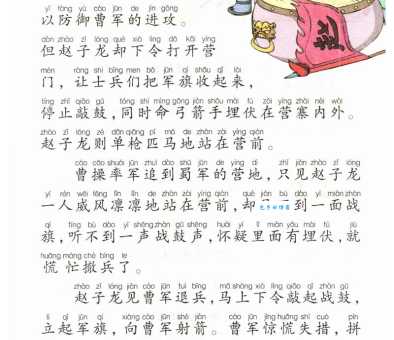 yǐ fáng yù cáo jūn de jìn gōng
以防御曹军的进攻。
dàn zhào zǐ lóng què xià lìng dǎ kāi yíng
但赵子龙却下令打开营
mén ràng shì bīng men bǎ jūn qí shōu qǐ lái
门，让士兵们把军旗收起来，
tíng zhǐ qiāo gǔ tóng shí mìng gōng jiàn shǒu mái fú zài yíng zhài nèi wài
停止敲鼓，同时命弓箭手埋伏在营寨内外。
zhào zǐ lóng zé dān qiāng pǐ mǎ de zhàn zài yíng qián
赵子龙则单枪匹马地站在营前。
cáo cāo shuài jūn zhuī dào shǔ jūn de yíng dì zhǐ jiàn zhào zǐ lóng
曹操率军追到蜀军的营地，只见赵子龙
yì rén wēi fēng lǐn lǐn de zhàn zài yíng qián què bú dào yí miàn zhàn
一人威风凛凛地站在营前，却 到一面战
qí tīng bú dào yì shēng zhàn gǔ shēng huái yí lǐ miàn yǒu mái fú jiù
旗，听不到一声战鼓声，怀疑里面有埋伏，就
huāng máng chè bīng le
慌忙撤兵了。
zhào zǐ lóng jiàn cáo jūn tuì bīng mǎ shàng xià lìng qiāo qǐ zhàn gǔ
赵子龙见曹军退兵，马上下令敲起战鼓，
lì qǐ jūn qí xiàng cáo jūn shè jiàn cáo jūn jīng huāng shī cuò pīn
立起军旗，向曹军射箭。曹军惊慌失措，拼